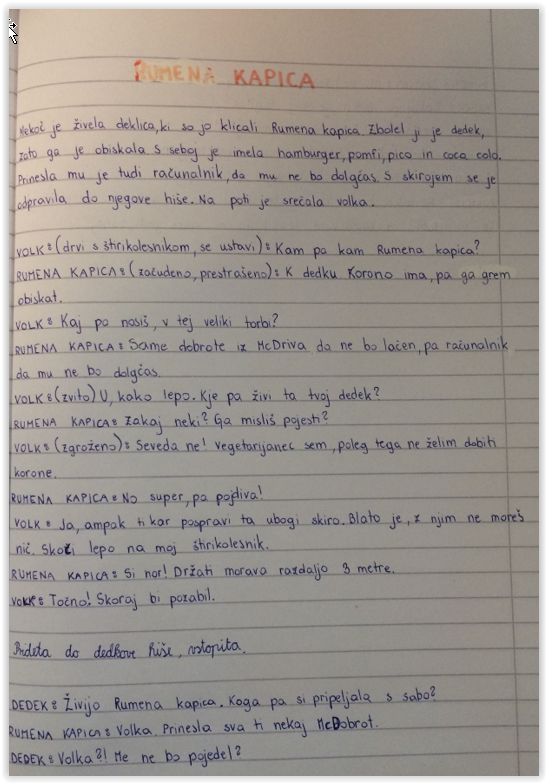 RUMENA KAPICA
Nekoč je živela deklica, ki so jo klicali Rumena kapica. Zbolel ji je dedek,
zato ga je obiskala s seboj je imela hamburger, pomfi, pico in coca colo.
Prinesla mu je tudi računalnik, da mu ne bo dolgčas. S skirojem se je
odpravila do njegove hiše. Na poti je srečala volka.
VOLK: (drvi s štirikolesnikom, se ustavi): Kam pa kam Rumena kapica?
RUMENA KAPICA: (začudeno, prestrašeno): K dedku Korono ima, pa ga grem
obiskat.
VOLK: Kaj pa nosiš, v tej veliki torbi?
RUMENA KAPICA: Same dobrote iz McDriva da ne bo lačen, pa računalnik
da mu ne bo dolgčas.
VOLK: (zvito) U, kako lepo. Kje pa živi ta tvoj dedek?
RUMENA KAPICA: zakaj neki? Ga misliš pojesti?
VOLK: (zgroženo): Seveda ne! Vegetarijanec sem, poleg tega ne želim dobiti
korone.
RUMENA KAPICA: No super, pa pojdiva!
VOLK: Ja, ampak ti kar pospravi ta ubogi skiro. Blato je, z njim ne moreš
nič. Skoči lepo na moj štirikolesnik.
RUMENA KAPICA: Si nor! Držati morava razdaljo 3 metre.
VOLK: Točno! Skoraj bi pozabil.
Prideta do dedkove hiše, vstopita.
DEDEK: Živijo Rumena kapica. Koga pa si pripeljala s sabo?
RUMENA KAPICA: Volka. Prinesla sva ti nekaj McDobrot.
DEDEK: Volka?! Me ne bo pojedel?